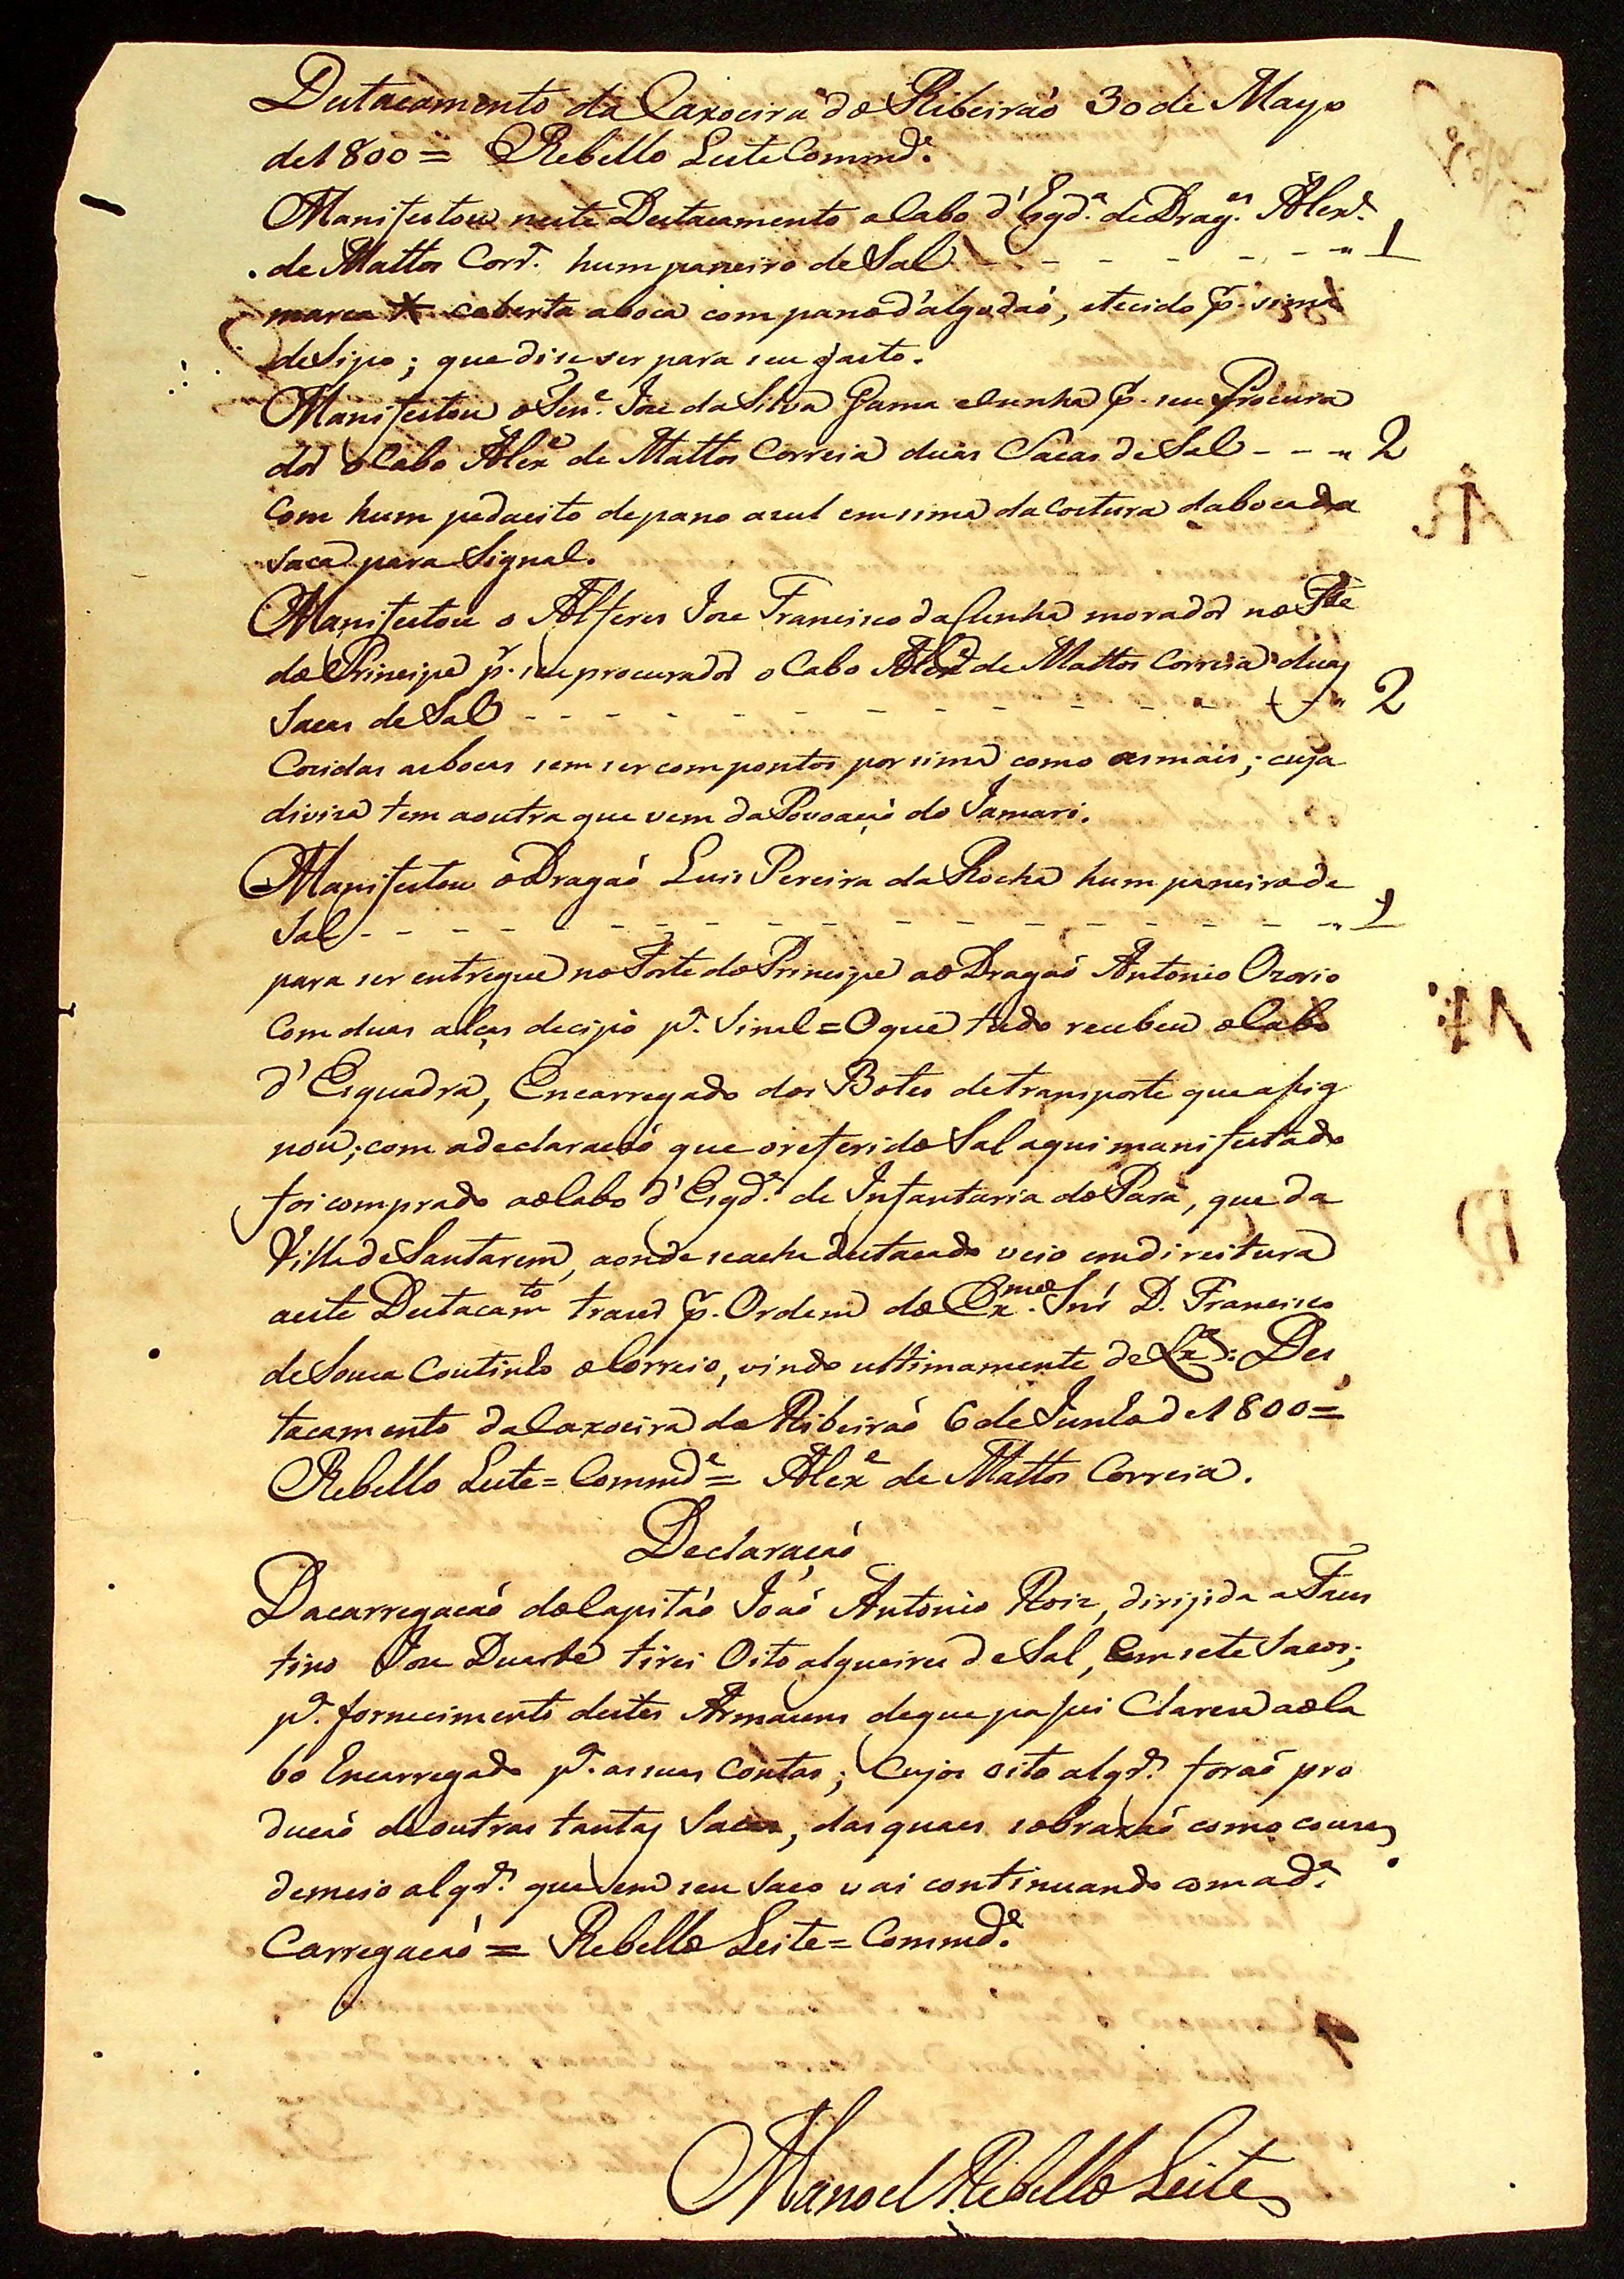 Destacamento da Caxoeira do Ribeiraó 30 de Mayo
de 1800 = Rebello Leite Commde.
Manifestou neste Destacamento o Cabo d'Esqdra. de Drages. Alexe.
de Mattos Corra. hum paneiro de Sal - - - - - - - " 1
marca * coberta a boca com pano d'algodaó, e tecido pr. sima
de Sipo; que dise ser para seu gasto.
Manifestou o Tene. Joze da Silva Gama e Cunha pr. seu Procura
dor o Cabo Alexe de Mattos Correia duas Sacas de Sal - - - " 2
Com hum pedacito de pano azul em sima da Costura da boca da
saca para Signal.
Manifestou o Alferes Joze Francisco da Cunha morador no Fte
do Principe pr. seu procurador o Cabo Alexe de Mattos Correia duas
Sacas de Sal - - - - - - - - - - - - - " 2
Cozidas as bocas sem ser com pontos por sima como as mais; cuja
diviza tem a outra que vem da Povoaçaó do Jamari.
Manifestou o Dragaó Luis Pereira da Rocha hum paneiro de
Sal - - - - - - - - - - - - - - - - " 1
para ser entregue no Forte do Principe ao Dragaó Antonio Ozorio
Com duas alças de cipó pa. Sinal = O que tudo recebeu o Cabo
d'Esquadra, Encarregado dos Botes de transporte que asig
nou; com a declaracaó que o referido Sal aqui manifestado
foi comprado ao Cabo d'Esqdra. de Infantaria do Pará, que da
Villa de Santarem, aonde se acha destacado veio em direitura
a este Destacamto trazer pr. Ordem do Exmo. Snr D. Francisco
de Souza Coutinho o Correio, vindo ultimamente de Lxa.: Des
tacamento da Caxoeira do Ribeiraó 6 de Junho de 1800 =
Rebello Leite = Commde = Alexe de Mattos Correia.
Declaraçaó
Da carregacaó do Capitaó Joaó Antonio Roiz, dirijida a Faus
tino Joze Duarte tirei Oito alqueires de Sal, em sete Sacos;
pa. fornecimento destes Armazens de que pasei Clareza ao Ca
bo Encarregado pa. as suas Contas; Cujos oito alqres. foraó pro
ducaó de outras tantas Sacas, das quaes sobraraó como couza
de meio alqre. que em seu Saco vai continuando com a da.
Carregacaó = Rebello Leite = Commde.
Manoel Rebello Leite